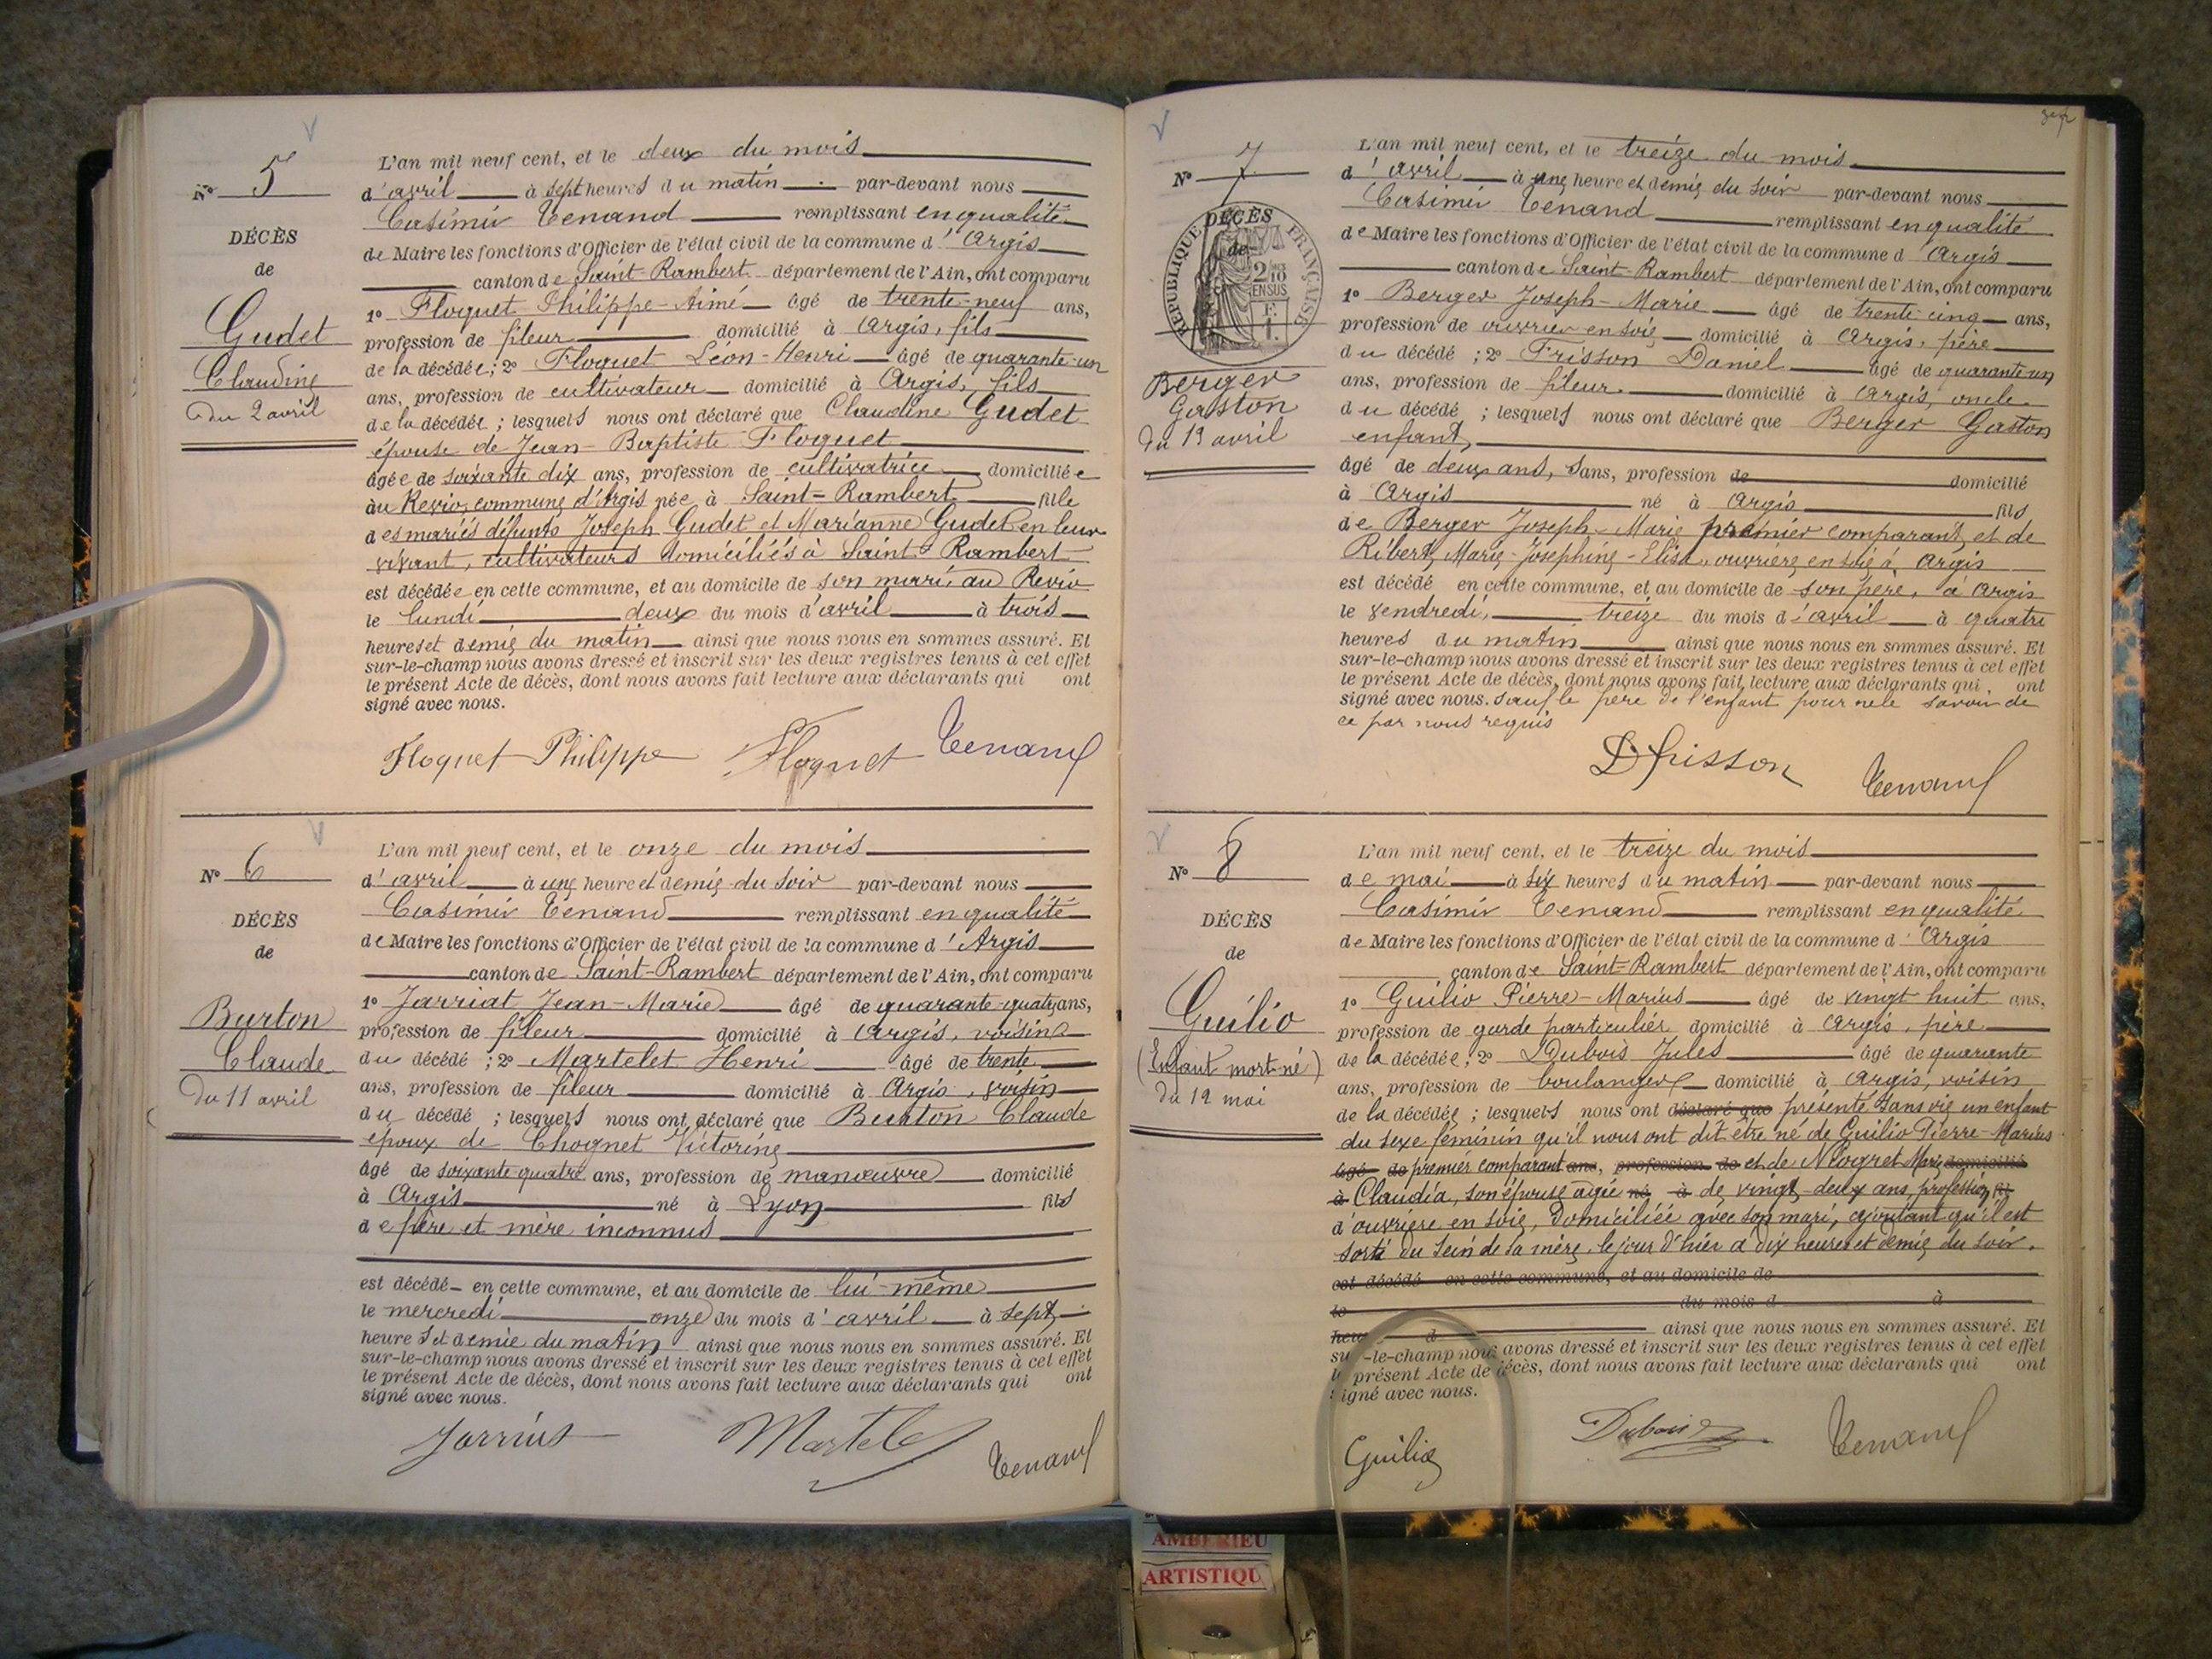 N° 5
DÉCÈS
de
Gudet
Claudine
du 2 avril
L'an mil neuf cent, et le deux du mois
d'avril à sept heures du matin par-devant nous
Casimir Tenand remplissant en qualité
de Maire les fonctions d'Officier de l'état civil de la commune d'Argis
canton de Saint-Rambert département de l'Ain, ont comparu
1° Floquet Philippe-Aimé âgé de trente-neuf ans,
profession de fileur domicilié à Argis, fils
de la décédée; 2° Floquet Léon-Henri âgé de quarante-un
ans, profession de cultivateur domicilié à Argis, fils
de la décédée; lesquels nous ont déclaré que Claudine Gudet
épouse de Jean-Baptiste Floquet
âgée de soixante dix ans, profession de cultivatrice domiciliée
au Revio, commune d'Argis née à Saint-Rambert fille
des mariés défunts Joseph Gudet et Marianne Gudet en leur
vivant, cultivateurs domiciliés à Saint-Rambert
est décédée en cette commune, et au domicile de son mari, au Revio
le lundi deux du mois d'avril à trois
heures et demie du matin ainsi que nous nous en sommes assuré. Et
sur-le-champ nous avons dressé et inscrit sur les deux registres tenus à cet effet
le présent Acte de décès, dont nous avons fait lecture aux déclarants qui ont
signé avec nous.
Floquet Philippe Floquet Tenand
N° 6
DÉCÈS
de
Burton
Claude
du 11 avril
L'an mil neuf cent, et le onze du mois
d'avril à une heure et demie du soir par-devant nous
Casimir Tenand remplissant en qualité
de Maire les fonctions d'Officier de l'état civil de la commune d'Argis
canton de Saint-Rambert département de l'Ain, ont comparu
1° Jarriat Jean-Marie âgé de quarante-quatre ans,
profession de fileur domicilié à Argis, voisin
du décédé; 2° Martelet Henri âgé de trente
ans, profession de fileur domicilié à Argis, voisin
du décédé; lesquels nous ont déclaré que Burton Claude
époux de Chognet Victorine
âgé de soixante-quatre ans, profession de manœuvre domicilié
à Argis né à Lyon fils
de père et mère inconnus
est décédé en cette commune, et au domicile de lui-même
le mercredi onze du mois d'avril à sept
heures et demie du matin ainsi que nous nous en sommes assuré. Et
sur-le-champ nous avons dressé et inscrit sur les deux registres tenus à cet effet
le présent Acte de décès, dont nous avons fait lecture aux déclarants qui ont
signé avec nous.
Tenand
N° 7
DÉCÈS
de
RÉPUBLIQUE FRANÇAISE
Berger
Gaston
du 13 avril
L'an mil neuf cent, et le treize du mois
d'avril à une heure et demie du soir par-devant nous
Casimir Tenand remplissant en qualité
de Maire les fonctions d'Officier de l'état civil de la commune d'Argis
canton de Saint-Rambert département de l'Ain, ont comparu
1° Berger Joseph-Marie âgé de trente cinq ans,
profession de ouvrier en soie domicilié à Argis, père
du décédé; 2° Frisson Daniel âgé de quarante un
ans, profession de fileur domicilié à Argis, oncle
du décédé; lesquels nous ont déclaré que Berger Gaston
enfant,
âgé de deux ans, sans, profession de domicilié
à Argis né à Argis fils
de Berger Joseph-Marie premier comparant, et de
Ribert, Marie-Joséphine-Elisa, ouvrière en soie à Argis
est décédé en cette commune, et au domicile de son père, à Argis
le vendredi, treize du mois d'avril à quatre
heures du matin ainsi que nous nous en sommes assuré. Et
sur-le-champ nous avons dressé et inscrit sur les deux registres tenus à cet effet
le présent Acte de décès, dont nous avons fait lecture aux déclarants qui, ont
signé avec nous. sauf le père de l'enfant pour ne le savoir de
ce par nous requis
D Frisson Tenand
N° 8
DÉCÈS
de
Guilio
(Enfant mort-né)
du 12 mai
L'an mil neuf cent, et le treize du mois
de mai à six heures du matin par-devant nous
Casimir Tenand remplissant en qualité
de Maire les fonctions d'Officier de l'état civil de la commune d'Argis
canton de Saint-Rambert département de l'Ain, ont comparu
1° Guilio Pierre-Marius âgé de vingt huit ans,
profession de garde particulier domicilié à Argis, père
de la décédée; 2° Dubois Jules âgé de quarante
ans, profession de boulanger domicilié à Argis, voisin
de la décédée; lesquels nous ont déclaré que présenté sans vie un enfant
du sexe féminin qu'il nous ont dit être né de Guilio Pierre-Marius
âgé de premier comparant ans, profession de et de Marie domicilié
à Claudia, son épouse agée né à de vingt-deux ans, profession fil
d'ouvrière en soie, domiciliée avec son mari, ajoutant qu'il est
sorti du sein de sa mère, le jour d'hier à dix heures et demie du soir.
est décédé en cette commune, et au domicile de
le du mois d à
heure d ainsi que nous nous en sommes assuré. Et
sur-le-champ nous avons dressé et inscrit sur les deux registres tenus à cet effet
le présent Acte de décès, dont nous avons fait lecture aux déclarants qui ont
signé avec nous.
Guilio Dubois Tenand
AMBERIEU
ARTISTIQU